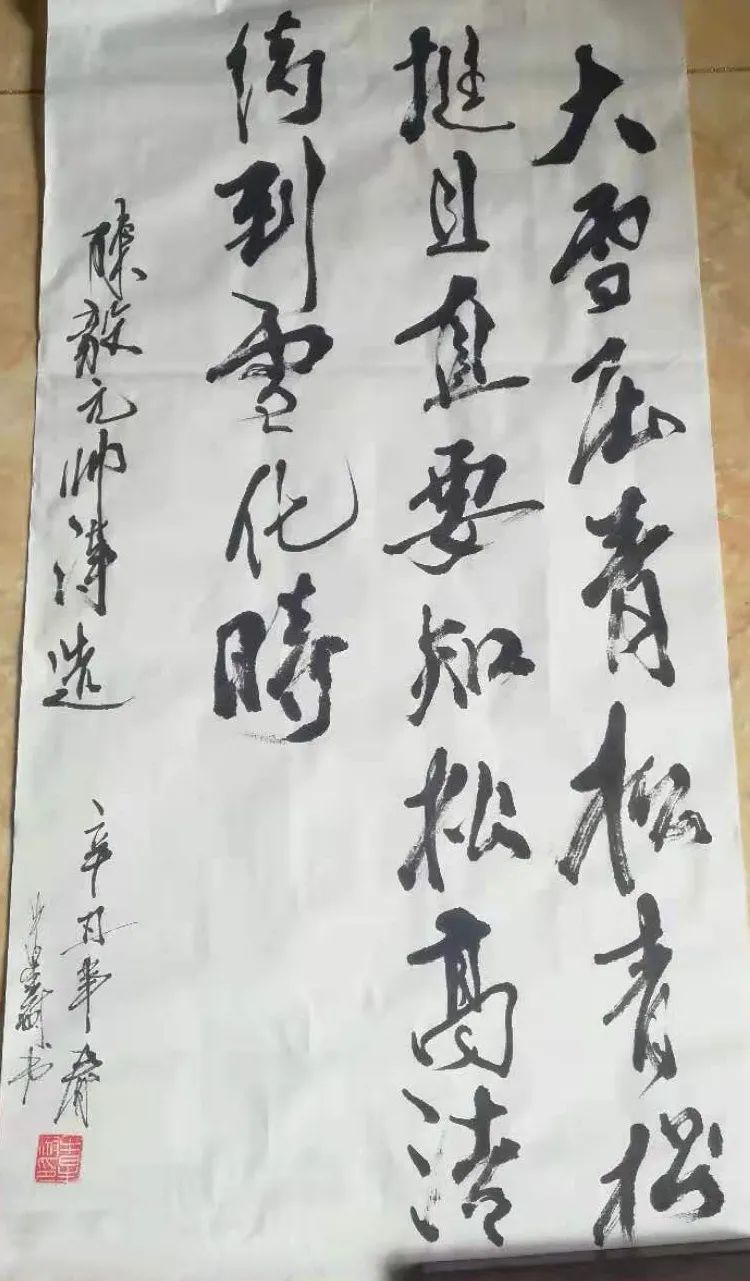 大雪压青松青松
挺且直要知松高洁
待到雪化時
陳毅元帅诗选
辛丑年春
书